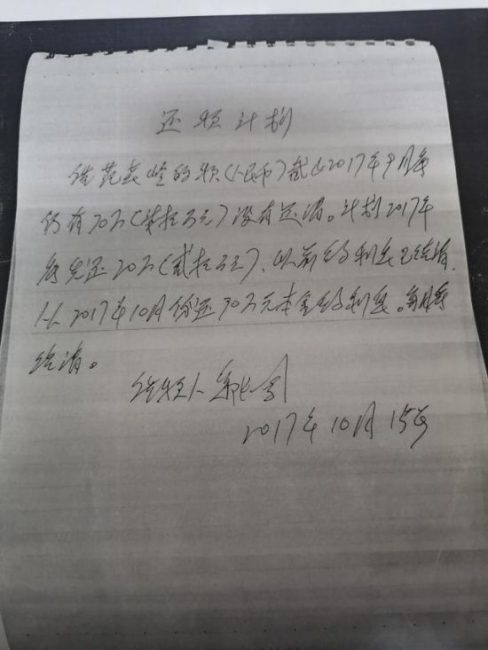 还款计划
借范 的款(人民币)截止2017年9月底
仍有70万(柒拾万元)没有还清。计划2017年
底先还20万(贰拾万元)、以前的利息已结清.
从2017年10月份还70万元本金的利息。每月
结清。
借款人
2017年10月15号